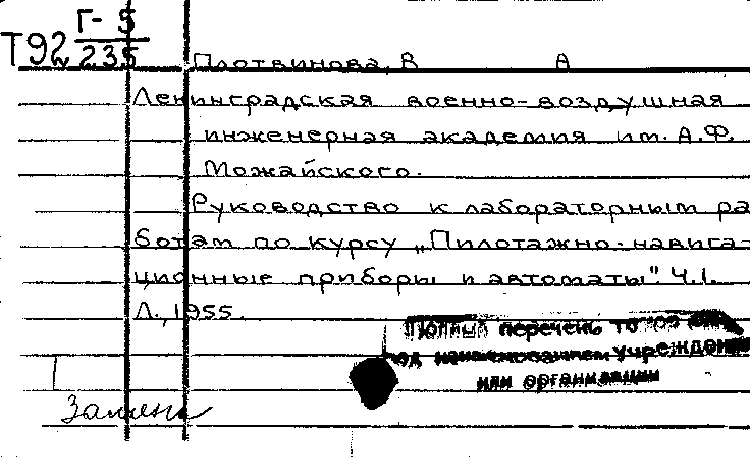 Т92 Г-5
235
Плотвинова, В А
Ленинградская военно-воздушная
инженерная академия им. А.Ф.
Можайского.
Руководство к лабораторным ра
ботам по курсу „Пилотажно-навига-
ционные приборы и автоматы". Ч.I.
Л., 1955.
Полный перечень
под наименованием учрежден
или организации
Замена